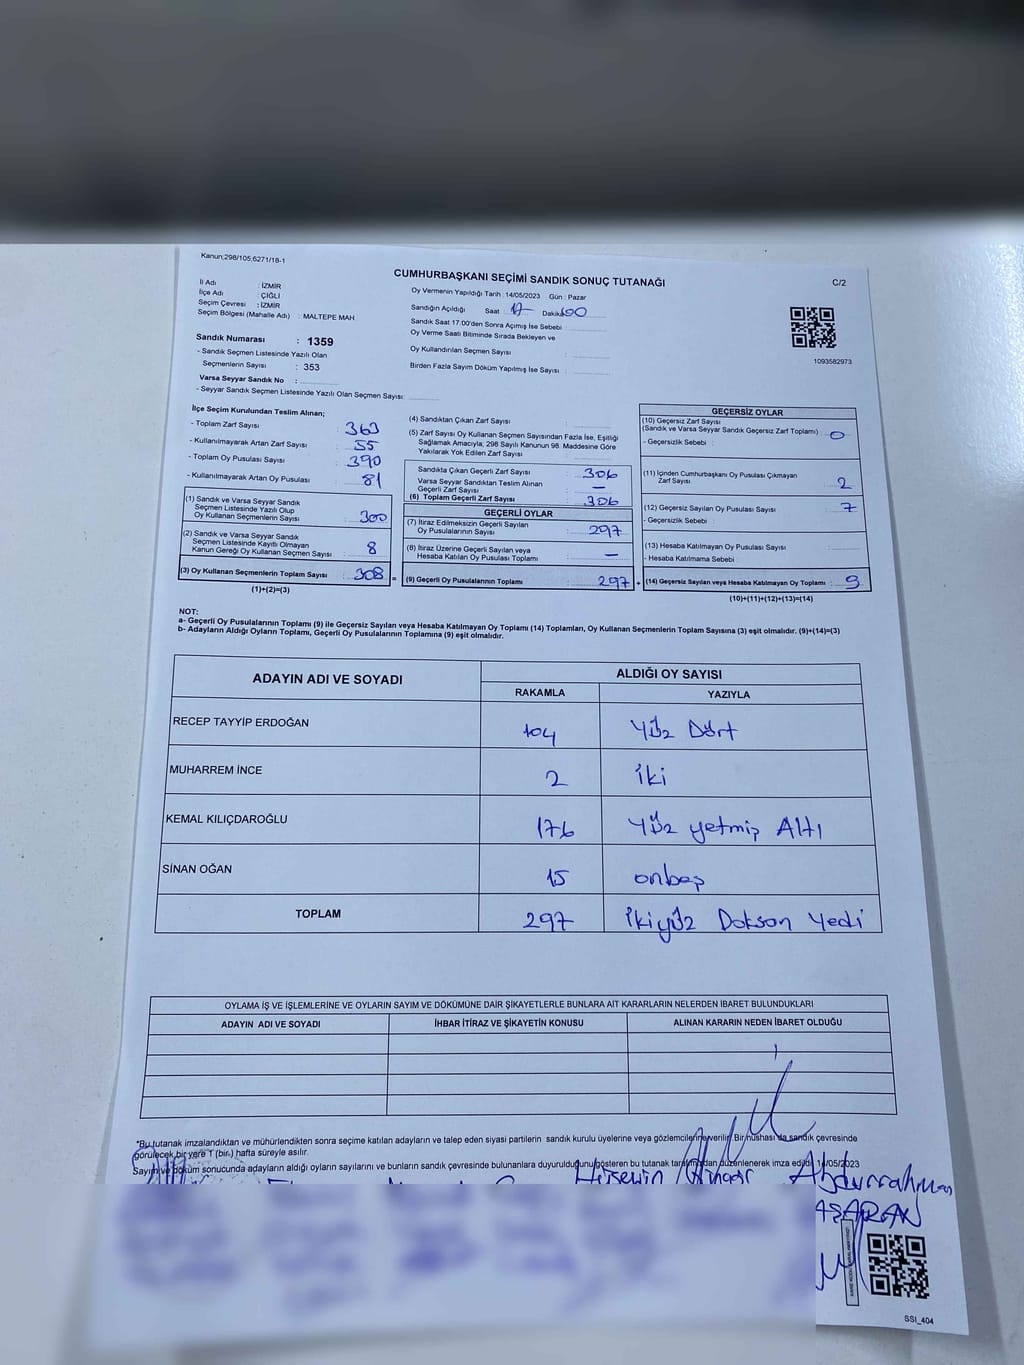 Kanun;298/105,6271/18-1
CUMHURBAŞKANI SEÇİMİ SANDIK SONUÇ TUTANAĞI
C/2
İl Adı : İZMİR
İlçe Adı ÇİĞLİ
Seçim Çevresi : İZMİR
Seçim Bölgesi (Mahalle Adı) : MALTEPE MAH
Oy Vermenin Yapıldığı Tarih : 14/05/2023 Gün : Pazar
Sandığın Açıldığı Saat 17 Dakika 00
Sandık Saat 17:00'den Sonra Açımış İse Sebebi :
Oy Verme Saati Bitiminde Sırada Bekleyen ve
Oy Kullandırılan Seçmen Sayısı :
Birden Fazla Sayım Döküm Yapılmış İse Sayısı :
1093582973
Sandık Numarası : 1359
- Sandık Seçmen Listesinde Yazılı Olan
Seçmenlerin Sayısı : 353
Varsa Seyyar Sandık No :
- Seyyar Sandık Seçmen Listesinde Yazılı Olan Seçmen Sayısı:
İlçe Seçim Kurulundan Teslim Alınan;
- Toplam Zarf Sayısı : 363
- Kullanılmayarak Artan Zarf Sayısı : 55
- Toplam Oy Pusulası Sayısı : 390
- Kullanılmayarak Artan Oy Pusulası : 81
(1) Sandık ve Varsa Seyyar Sandık
Seçmen Listesinde Yazılı Olup
Oy Kullanan Seçmenlerin Sayısı : 300
(2) Sandık ve Varsa Seyyar Sandık
Seçmen Listesinde Kayıtlı Olmayan
Kanun Gereği Oy Kullanan Seçmen Sayısı : 8
(3) Oy Kullanan Seçmenlerin Toplam Sayısı : 308 =
(1)+(2)=(3)
(4) Sandıktan Çıkan Zarf Sayısı :
(5) Zarf Sayısı Oy Kullanan Seçmen Sayısından Fazla İse, Eşitliği
Sağlamak Amacıyla, 298 Sayılı Kanunun 98. Maddesine Göre
Yakılarak Yok Edilen Zarf Sayısı :
Sandıkta Çıkan Geçerli Zarf Sayısı : 306
Varsa Seyyar Sandıktan Teslim Alınan
Geçerli Zarf Sayısı : —
(6) Toplam Geçerli Zarf Sayısı : 306
GEÇERLİ OYLAR
(7) İtiraz Edilmeksizin Geçerli Sayılan
Oy Pusulalarının Sayısı : 297
(8) İtiraz Üzerine Geçerli Sayılan veya
Hesaba Katılan Oy Pusulası Toplamı : —
(9) Geçerli Oy Pusulalarının Toplamı : 297 +
GEÇERSİZ OYLAR
(10) Geçersiz Zarf Sayısı
(Sandık ve Varsa Seyyar Sandık Geçersiz Zarf Toplamı) : 0
- Geçersizlik Sebebi :
(11) İçinden Cumhurbaşkanı Oy Pusulası Çıkmayan
Zarf Sayısı : 2
(12) Geçersiz Sayılan Oy Pusulası Sayısı : 7
- Geçersizlik Sebebi :
(13) Hesaba Katılmayan Oy Pusulası Sayısı :
- Hesaba Katılmama Sebebi
(14) Geçersiz Sayılan veya Hesaba Katılmayan Oy Toplamı : 9
(10)+(11)+(12)+(13)=(14)
NOT:
a- Geçerli Oy Pusulalarının Toplamı (9) ile Geçersiz Sayılan veya Hesaba Katılmayan Oy Toplamı (14) Toplamları, Oy Kullanan Seçmenlerin Toplam Sayısına (3) eşit olmalıdır. (9)+(14)=(3)
b- Adayların Aldığı Oyların Toplamı, Geçerli Oy Pusulalarının Toplamına (9) eşit olmalıdır.
ADAYIN ADI VE SOYADI
ALDIĞI OY SAYISI
RAKAMLA YAZIYLA
RECEP TAYYİP ERDOĞAN 104 Yüz Dört
MUHARREM İNCE 2 iki
KEMAL KILIÇDAROĞLU 176 Yüz yetmiş Altı
SİNAN OĞAN 15 onbeş
TOPLAM 297 ikiyüz Doksan Yedi
OYLAMA İŞ VE İŞLEMLERİNE VE OYLARIN SAYIM VE DÖKÜMÜNE DAİR ŞİKAYETLERLE BUNLARA AİT KARARLARIN NELERDEN İBARET BULUNDUKLARI
ADAYIN ADI VE SOYADI İHBAR İTİRAZ VE ŞİKAYETİN KONUSU ALINAN KARARIN NEDEN İBARET OLDUĞU
*Bu tutanak imzalandıktan ve mühürlendikten sonra seçime katılan adayların ve talep eden siyasi partilerin sandık kurulu üyelerine veya gözlemcilerine verilir. Bir nüshası da sandık çevresinde
görülecek bir yere 1 (bir) hafta süreyle asılır.
Sayım ve döküm sonucunda adayların aldığı oyların sayılarını ve bunların sandık çevresinde bulunanlara duyurulduğunu gösteren bu tutanak tarafımızdan düzenlenerek imza edildi. 14/05/2023
Hüseyin
Abdurrahman
AŞARAN
SSI_404